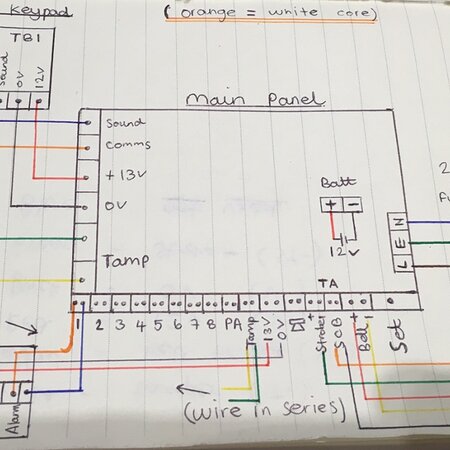 Keypad
(orange = white core)
TB1
Sound
0V
12V
Main Panel
Sound
Comms
+13V
0V
Tamp
Batt
+ -
12V
N
E
L
TA
1 2 3 4 5 6 7 8 PA Tamp 13V 0V + Strobe SCB + Bell - Set
Alarm
(wire in series)